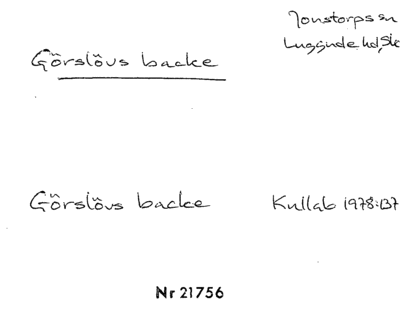 Jonstorps sn
Luggude hd, Sk
Görslövs backe
Görslövs backe Kullab 1978:137
Nr 21756